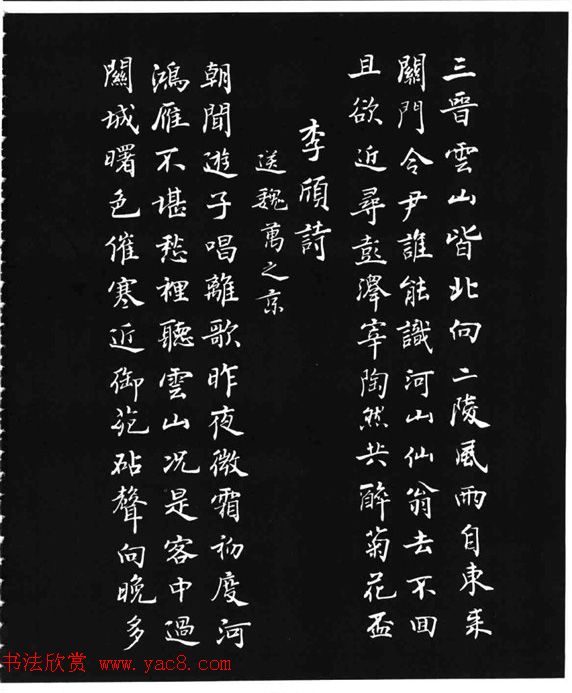 三晉雲山皆北向二陵風雨自東來
關門令尹誰能識河山仙翁去不回
且欲近尋彭澤宰陶然共醉菊花盃
李頎詩
送魏萬之京
朝聞遊子唱離歌昨夜微霜初度河
鴻雁不堪愁裡聽雲山况是客中過
關城曙色催寒近御苑砧聲向晚多
书法欣赏 www.yac8.com